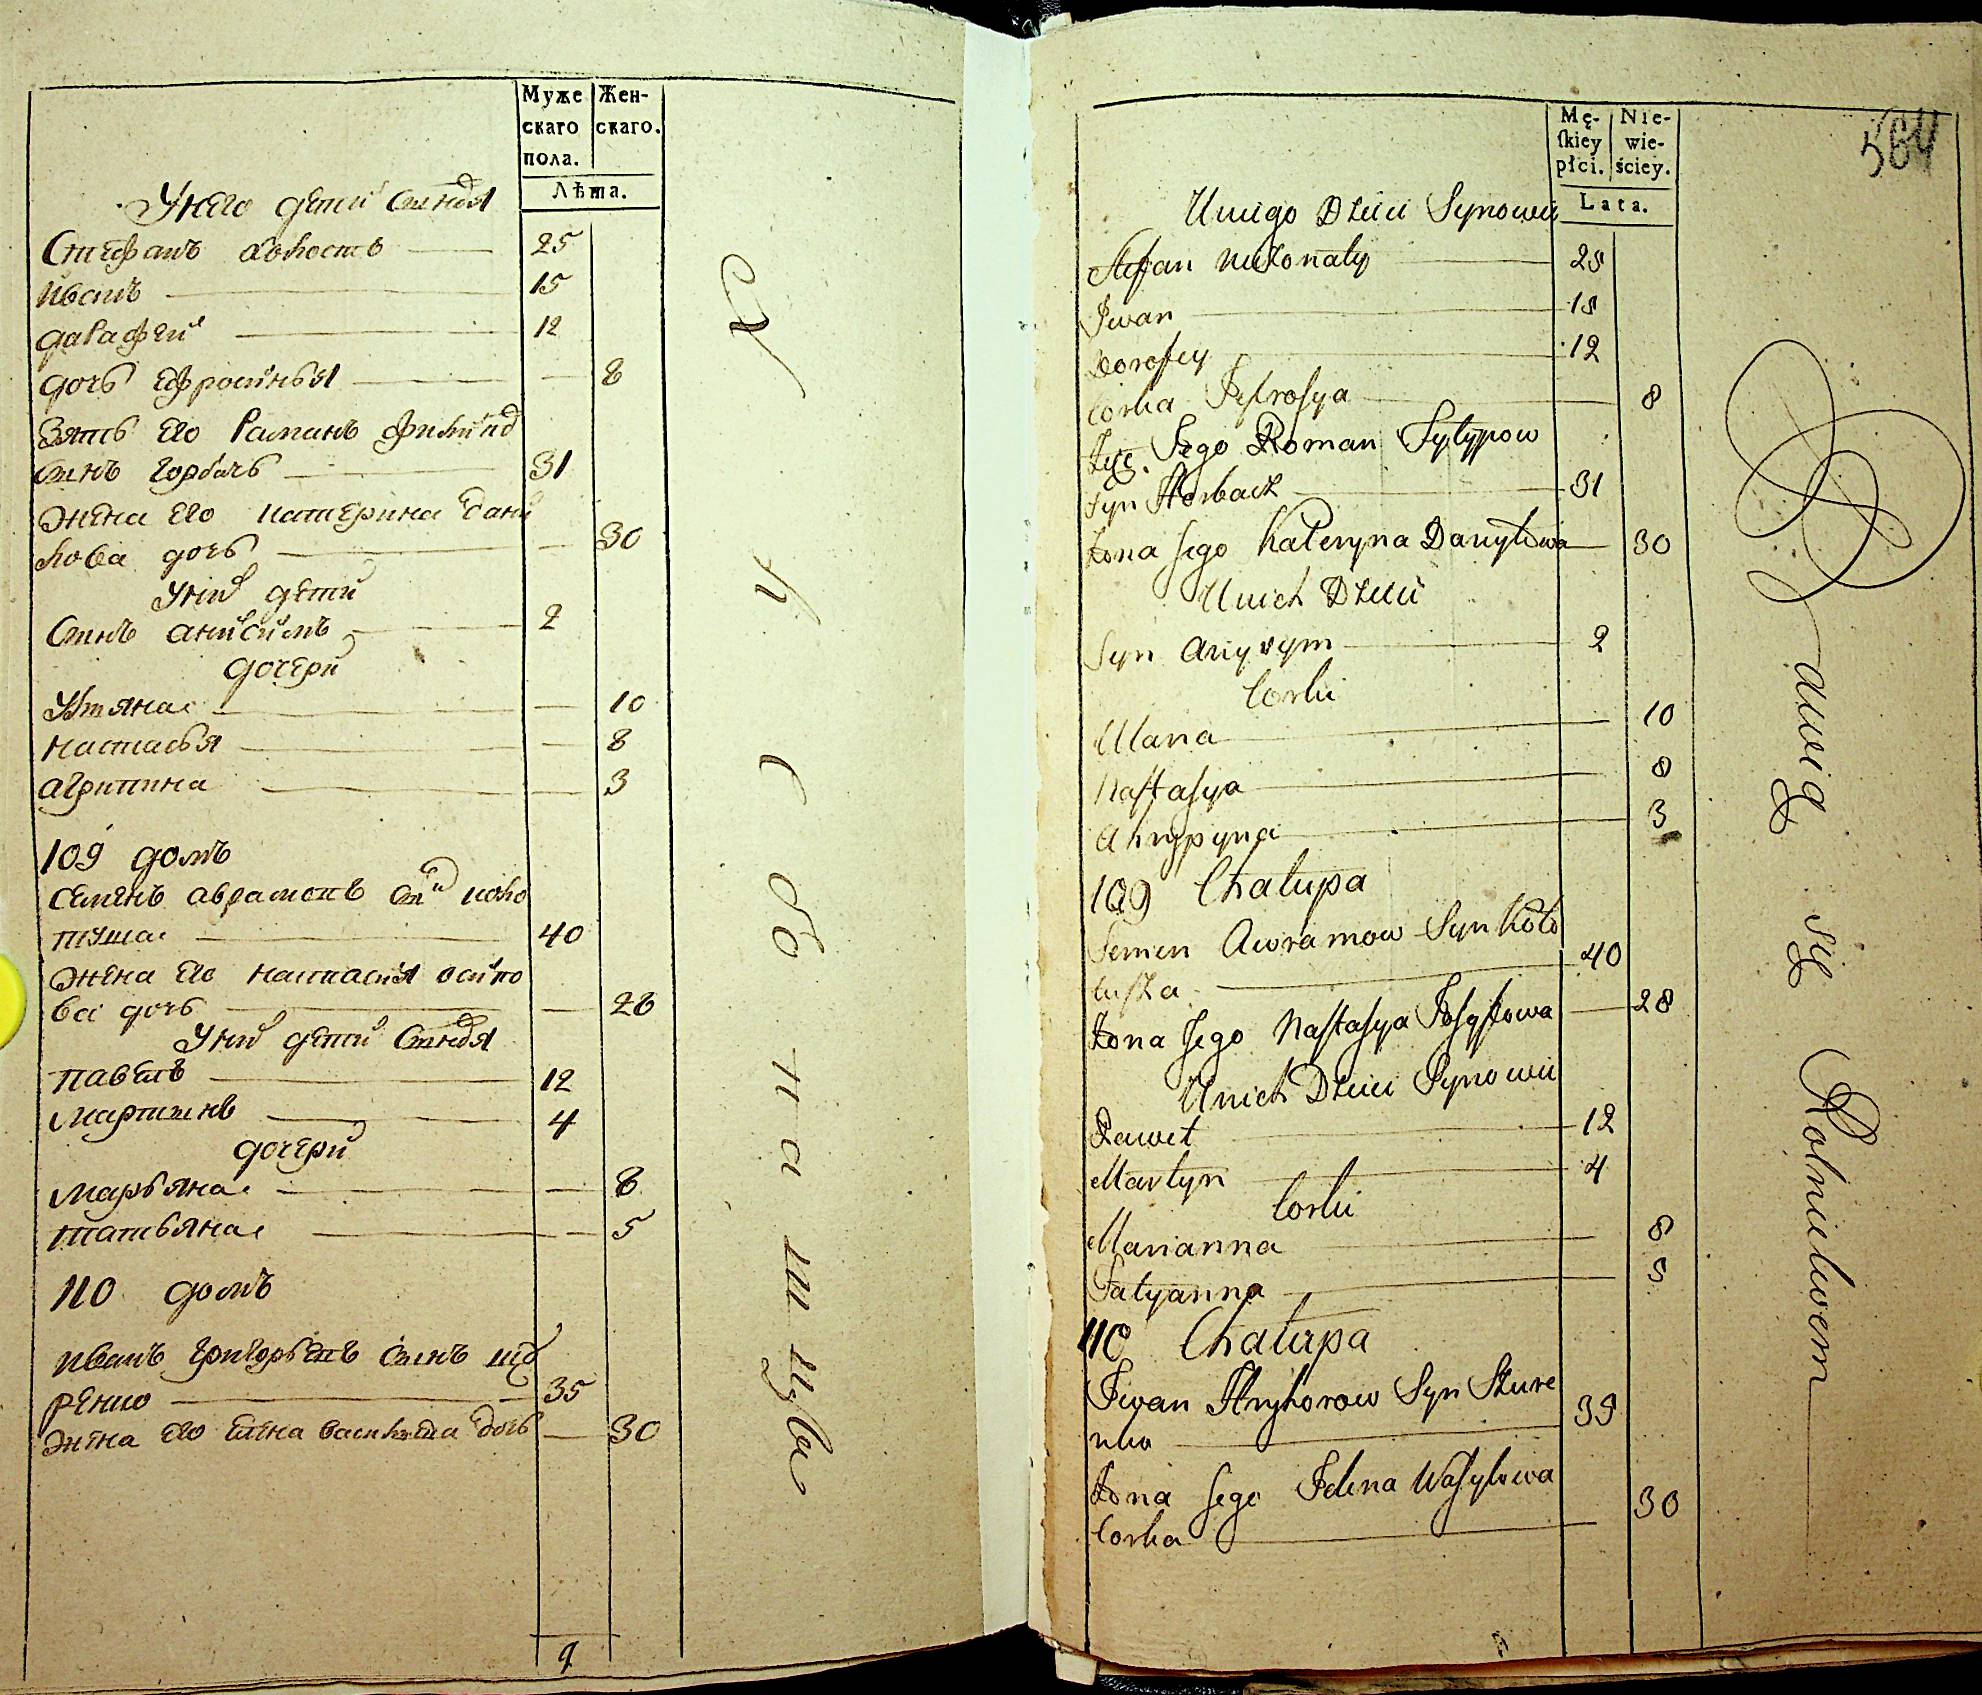 Муже Жен-
скаго скаго.
пола.
Лѣта.
У него дети сыновя
Стефанъ холостъ 25
Иванъ 15
дарафей 12
дочь Ефросинья 8
Зять его Раманъ Филипов
сынъ горбачь 31
Жена его катерина Дани
лова дочь 30
У них дети
Сынъ анисимъ 2
дочери
Ульяна 10
настасья 8
агрипина 3
109 домъ
семенъ аврамовъ сынъ коло
туша 40
жена его настасия осипо
ва дочь 28
У них дети Сыновя
павелъ 12
мартынъ 4
дочери
марьяна 8
татьяна 5
110 домъ
иванъ григорьевъ сынъ щу
ренко 35
жена его елена васильева дочь 30
9
Mę- Nie-
ſkiey wie-
płci. ściey.
Lata.
564
U niego Dzieci Synowie
Stefan nieżonaty 25
Iwan 15
Dorofiey 12
Corka Jefrosya 8
Zięć Jego Roman Fylypow
syn Horbacz 31
Żona Jego Kateryna Danyłowa 30
U nich Dzieci
Syn Anysym 2
Corki
Ulana 10
Nastasya 8
Ahrypyna 3
109 Chałupa
Semen Awramow Syn Koło
tuszka 40
Żona Jego Nastasya Josypowa 28
U nich Dzieci Synowie
Paweł 12
Martyn 4
Corki
Marianna 8
Tatyanna 5
110 Chałupa
Iwan Hryhorow Syn Szczure
nko 35
Żona Jego Jelena Wasylowa 30
Corka
bawią się Rolnictwem